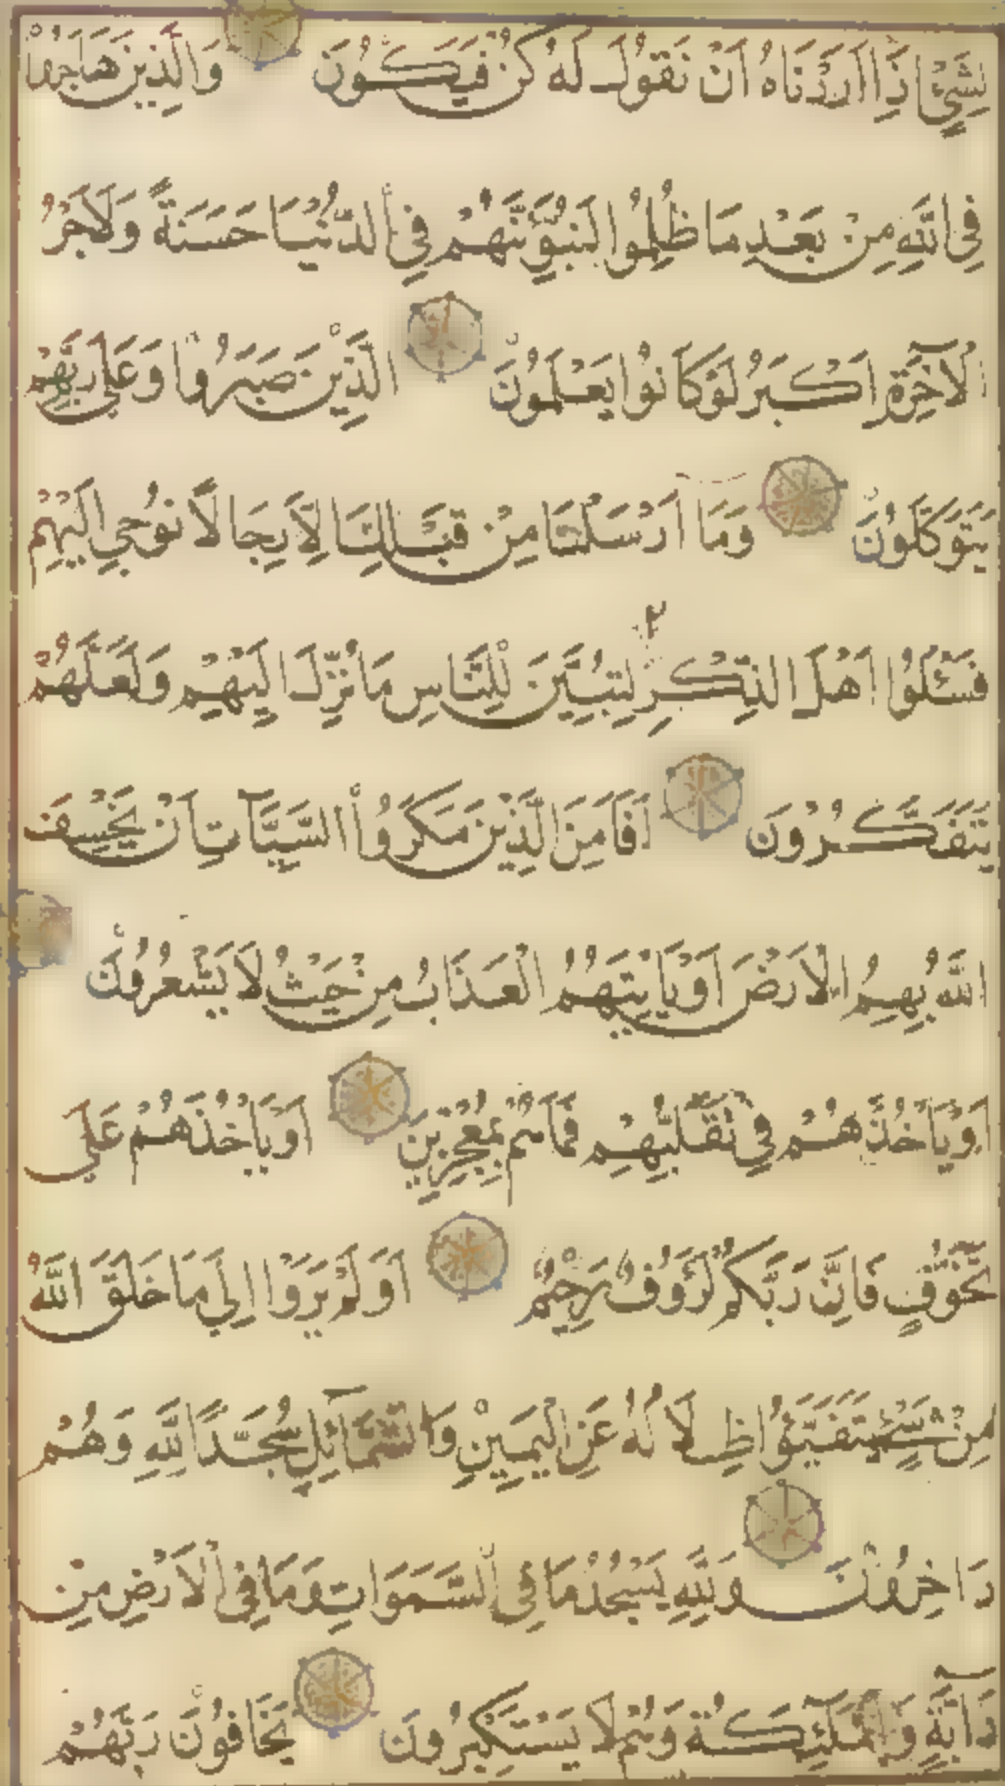 لِشَيْءٍ اِذَا اَرَدْنَاهُ اَنْ نَقُولَ لَهُ كُنْ فَيَكُونُ وَالَّذِينَ هَاجَرُوا
فِي اللّٰهِ مِنْ بَعْدِ مَا ظُلِمُوا لَنُبَوِّئَنَّهُمْ فِي الدُّنْيَا حَسَنَةً وَلَاَجْرُ
الْاٰخِرَةِ اَكْبَرُ لَوْ كَانُوا يَعْلَمُونَ الَّذِينَ صَبَرُوا وَعَلٰى رَبِّهِمْ
يَتَوَكَّلُونَ وَمَا اَرْسَلْنَا مِنْ اِلَّا رِجَالًا نُوحِي اِلَيْهِمْ
فَسْئَلُوا اَهْلَ الذِّكْرِ لِتُبَيِّنَ لِلنَّاسِ مَا نُزِّلَ اِلَيْهِمْ وَلَعَلَّهُمْ
يَتَفَكَّرُونَ اَفَاَمِنَ الَّذِينَ مَكَرُوا السَّيِّئَاتِ اَنْ يَخْسِفَ
اللّٰهُ بِهِمُ الْاَرْضَ اَوْ يَاْتِيَهُمُ الْعَذَابُ مِنْ حَيْثُ لَا يَشْعُرُونَ
اَوْ يَاْخُذَهُمْ فِي تَقَلُّبِهِمْ فَمَا هُمْ بِمُعْجِزِينَ اَوْ يَاْخُذَهُمْ عَلٰى
تَخَوُّفٍ فَاِنَّ رَبَّكُمْ لَرَؤُفٌ رَحِيمٌ اَوَلَمْ يَرَوْا اِلٰى مَا خَلَقَ اللّٰهُ
مِنْ شَيْءٍ يَتَفَيَّؤُا ظِلَالُهُ عَنِ الْيَمِينِ وَالشَّمَائِلِ سُجَّدًا لِلّٰهِ وَهُمْ
دَاخِرُونَ وَلِلّٰهِ يَسْجُدُ مَا فِي السَّمٰوَاتِ وَمَا فِي الْاَرْضِ مِنْ
دَابَّةٍ وَالْمَلٰئِكَةُ وَهُمْ لَا يَسْتَكْبِرُونَ يَخَافُونَ رَبَّهُمْ